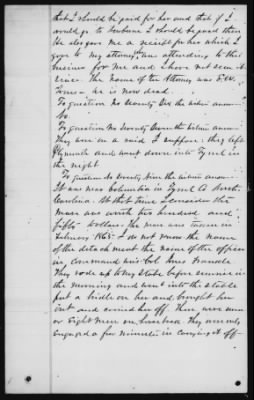 that I should be paid for her and that if I
would go to I should be paid then
He also gave me a receipt for her which I
gave to my attorney, who was attending to this
business for me and I have not seen it
since. The name of the Attorney was F. W.
he is now dead.
To question No Seventy Six the witness answers
No.
To question No Seventy Seven the witness answers
They were on a raid I suppose they left
Plymouth and went down into Tyrrel in
the night.
To question No Seventy Nine the witness answers
It was near Columbia in Tyrrel Co North
Carolina. At that time I consider the
Mare was worth two hundred and
fifty dollars. The mare was taken in
February 1865. I do not know the names
of the detachment the name of the officer
in command was Col Jones Frankle
They rode up to my stable before sunrise in
the morning and went into the stable
put a bridle on her and brought her
out and carried her off. There were seven
or Eight men on horseback They were only
engaged a few minutes in carrying it off